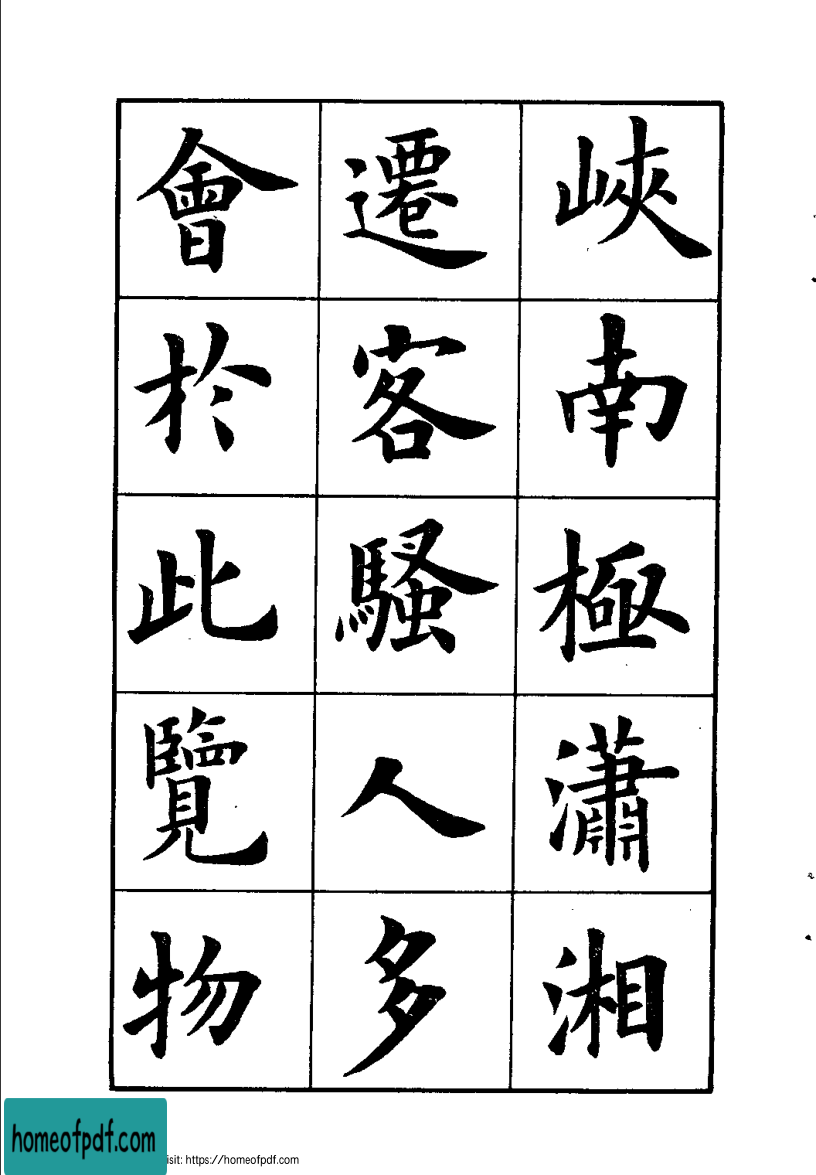 峽南極瀟湘
遷客騷人多
會於此覽物
homeofpdf.com
isit: https://homeofpdf.com